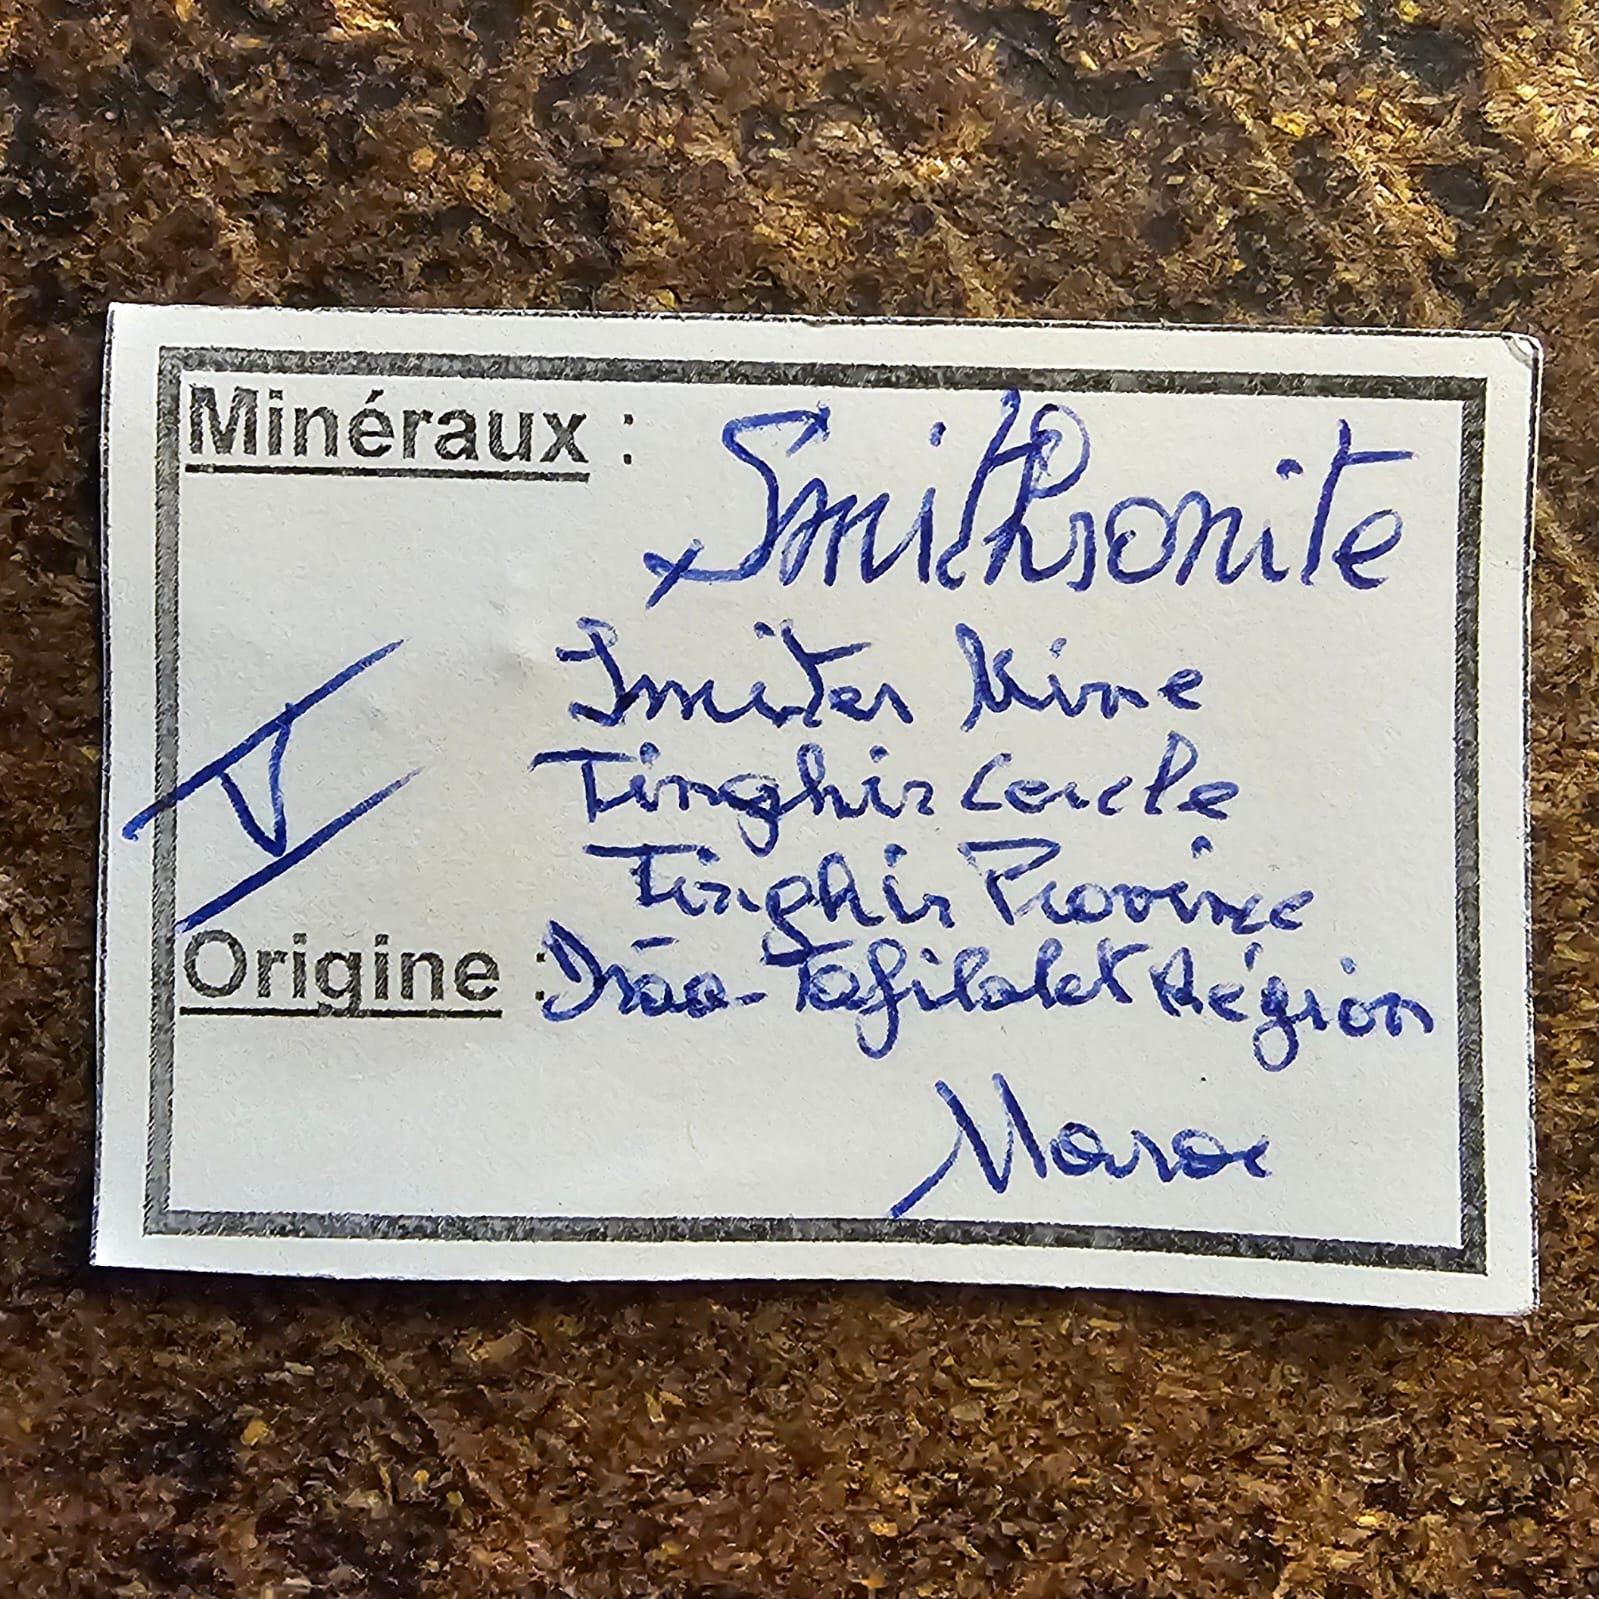 Minéraux : Smithsonite
Imiter Mine
V
Tinghir Cercle
Tinghir Province
Origine : Drâa-Tafilalet Région
Maroc